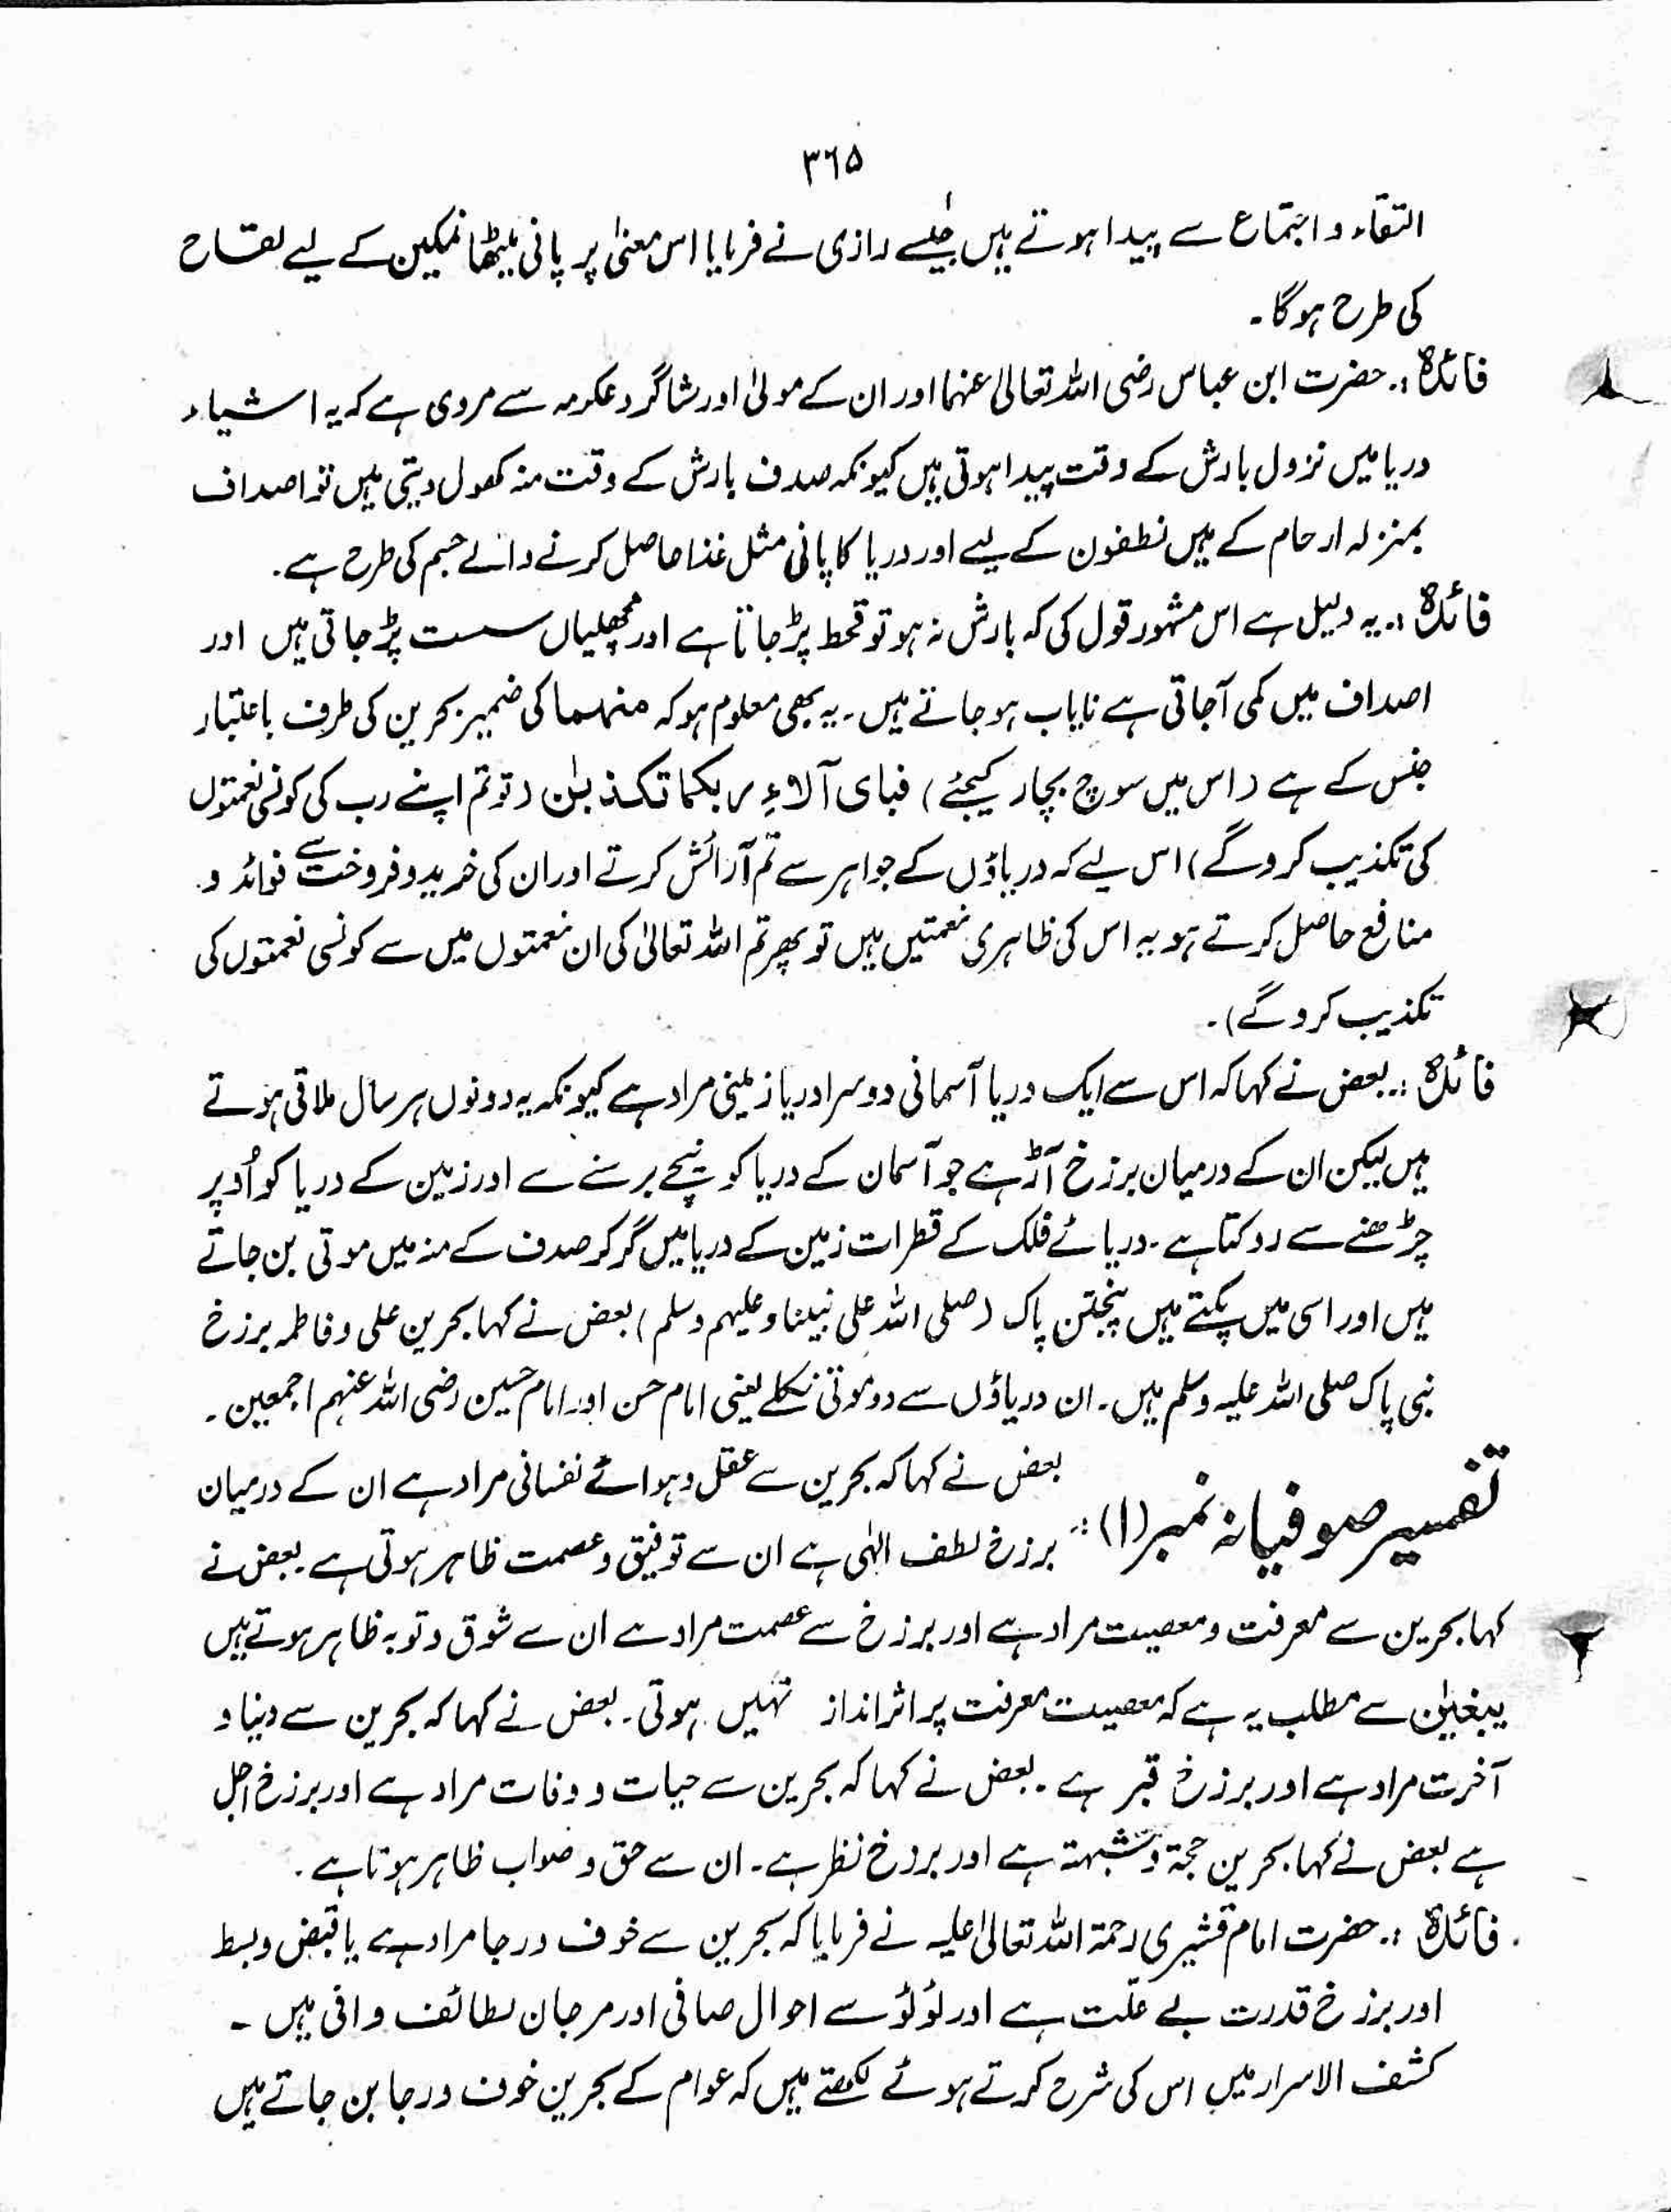 ۳٦۵
التقاء و اجتماع سے پیدا ہوتے ہیں جیسے رازی نے فرمایا اس معنیٰ پر پانی میٹھا نمکین کے لیے لقاح
کی طرح ہوگا۔
فائدہ :۔ حضرت ابن عباس رضی اللہ تعالیٰ عنہما اور ان کے مولیٰ اور شاگرد عکرمہ سے مروی ہے کہ یہ اشیاء
دریا میں نزول بارش کے وقت پیدا ہوتی ہیں کیونکہ صدف بارش کے وقت منہ کھول دیتی ہیں تو اصداف
بمنزلہ ارحام کے ہیں نطفوں کے لیے اور دریا کا پانی مثل غذا حاصل کرنے والے جسم کی طرح ہے۔
فائدہ :۔ یہ دلیل ہے اس مشہور قول کی کہ بارش نہ ہو تو قحط پڑ جاتا ہے اور مچھلیاں سست پڑ جاتی ہیں اور
اصداف میں کمی آجاتی ہے نایاب ہو جاتے ہیں۔ یہ بھی معلوم ہو کہ منہما کی ضمیر بحرین کی طرف باعتبار
جنس کے ہے (اس میں سوچ بچار کیجئے) فبای آلاءِ ربکما تکذبٰن (تو تم اپنے رب کی کونسی نعمتوں
کی تکذیب کرو گے) اس لیے کہ دریاؤں کے جواہر سے تم آرائش کرتے اور ان کی خرید و فروخت سے فوائد و
منافع حاصل کرتے ہو یہ اس کی ظاہری نعمتیں ہیں تو پھر تم اللہ تعالیٰ کی ان نعمتوں میں سے کونسی نعمتوں کی
تکذیب کرو گے)۔
فائدہ :۔ بعض نے کہا کہ اس سے ایک دریا آسمانی دوسرا دریا زمینی مراد ہے کیونکہ یہ دونوں ہر سال ملاقی ہوتے
ہیں لیکن ان کے درمیان برزخ آڑ ہے جو آسمان کے دریا کو نیچے برسنے سے اور زمین کے دریا کو اُوپر
چڑھنے سے روکتا ہے۔ دریائے فلک کے قطرات زمین کے دریا میں گر کر صدف کے منہ میں موتی بن جاتے
ہیں اور اسی میں پکتے ہیں پنجتن پاک (صلی اللہ علی نبینا و علیہم وسلم) بعض نے کہا بحرین علی و فاطمہ برزخ
نبی پاک صلی اللہ علیہ وسلم ہیں۔ ان دریاؤں سے دو موتی نکلے یعنی امام حسن اور امام حسین رضی اللہ عنہم اجمعین۔
تفسیر صوفیانہ نمبر (۱) :۔ بعض نے کہا کہ بحرین سے عقل و ہوائے نفسانی مراد ہے ان کے درمیان
برزخ لطف الٰہی ہے ان سے توفیق و عصمت ظاہر ہوتی ہے۔ بعض نے
کہا بحرین سے معرفت و معصیت مراد ہے اور برزخ سے عصمت مراد ہے ان سے شوق و توبہ ظاہر ہوتے ہیں
یبغیٰن سے مطلب یہ ہے کہ معصیت معرفت پر اثر انداز نہیں ہوتی۔ بعض نے کہا کہ بحرین سے دنیا و
آخرت مراد ہے اور برزخ قبر ہے۔ بعض نے کہا کہ بحرین سے حیات و وفات مراد ہے اور برزخ اجل
ہے بعض نے کہا بحرین حجۃ و شبہتہ ہے اور بررخ نظر ہے۔ ان سے حق و صواب ظاہر ہوتا ہے۔
فائدہ :۔ حضرت امام قشیری رحمۃ اللہ تعالیٰ علیہ نے فرمایا کہ بحرین سے خوف و رجا مراد ہے یا قبض و بسط
اور برزخ قدرت بے علّت ہے اور لؤلؤ سے احوال صافی اور مرجان لطائف وافی ہیں۔
کشف الاسرار میں اس کی شرح کرتے ہوئے لکھتے ہیں کہ عوام کے بحرین خوف و رجا بن جاتے ہیں